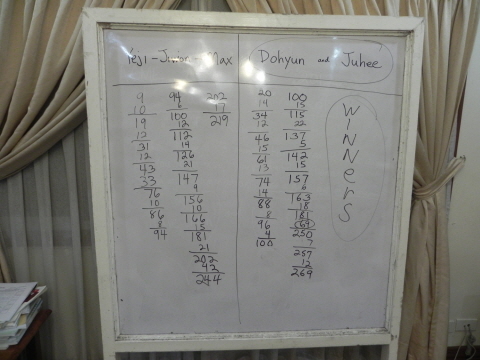 Yeji - Jiwon - Max
9
10
19
12
31
12
43
33
76
10
86
8
94
94
6
100
12
112
14
126
21
147
9
156
10
166
15
181
21
202
42
244
202
17
219
Dohyun and Juhee
20
14
34
12
46
15
61
13
74
14
88
8
96
4
100
100
15
115
22
137
5
142
15
157
6
163
18
181
69
250
7
257
12
269
WINNERS